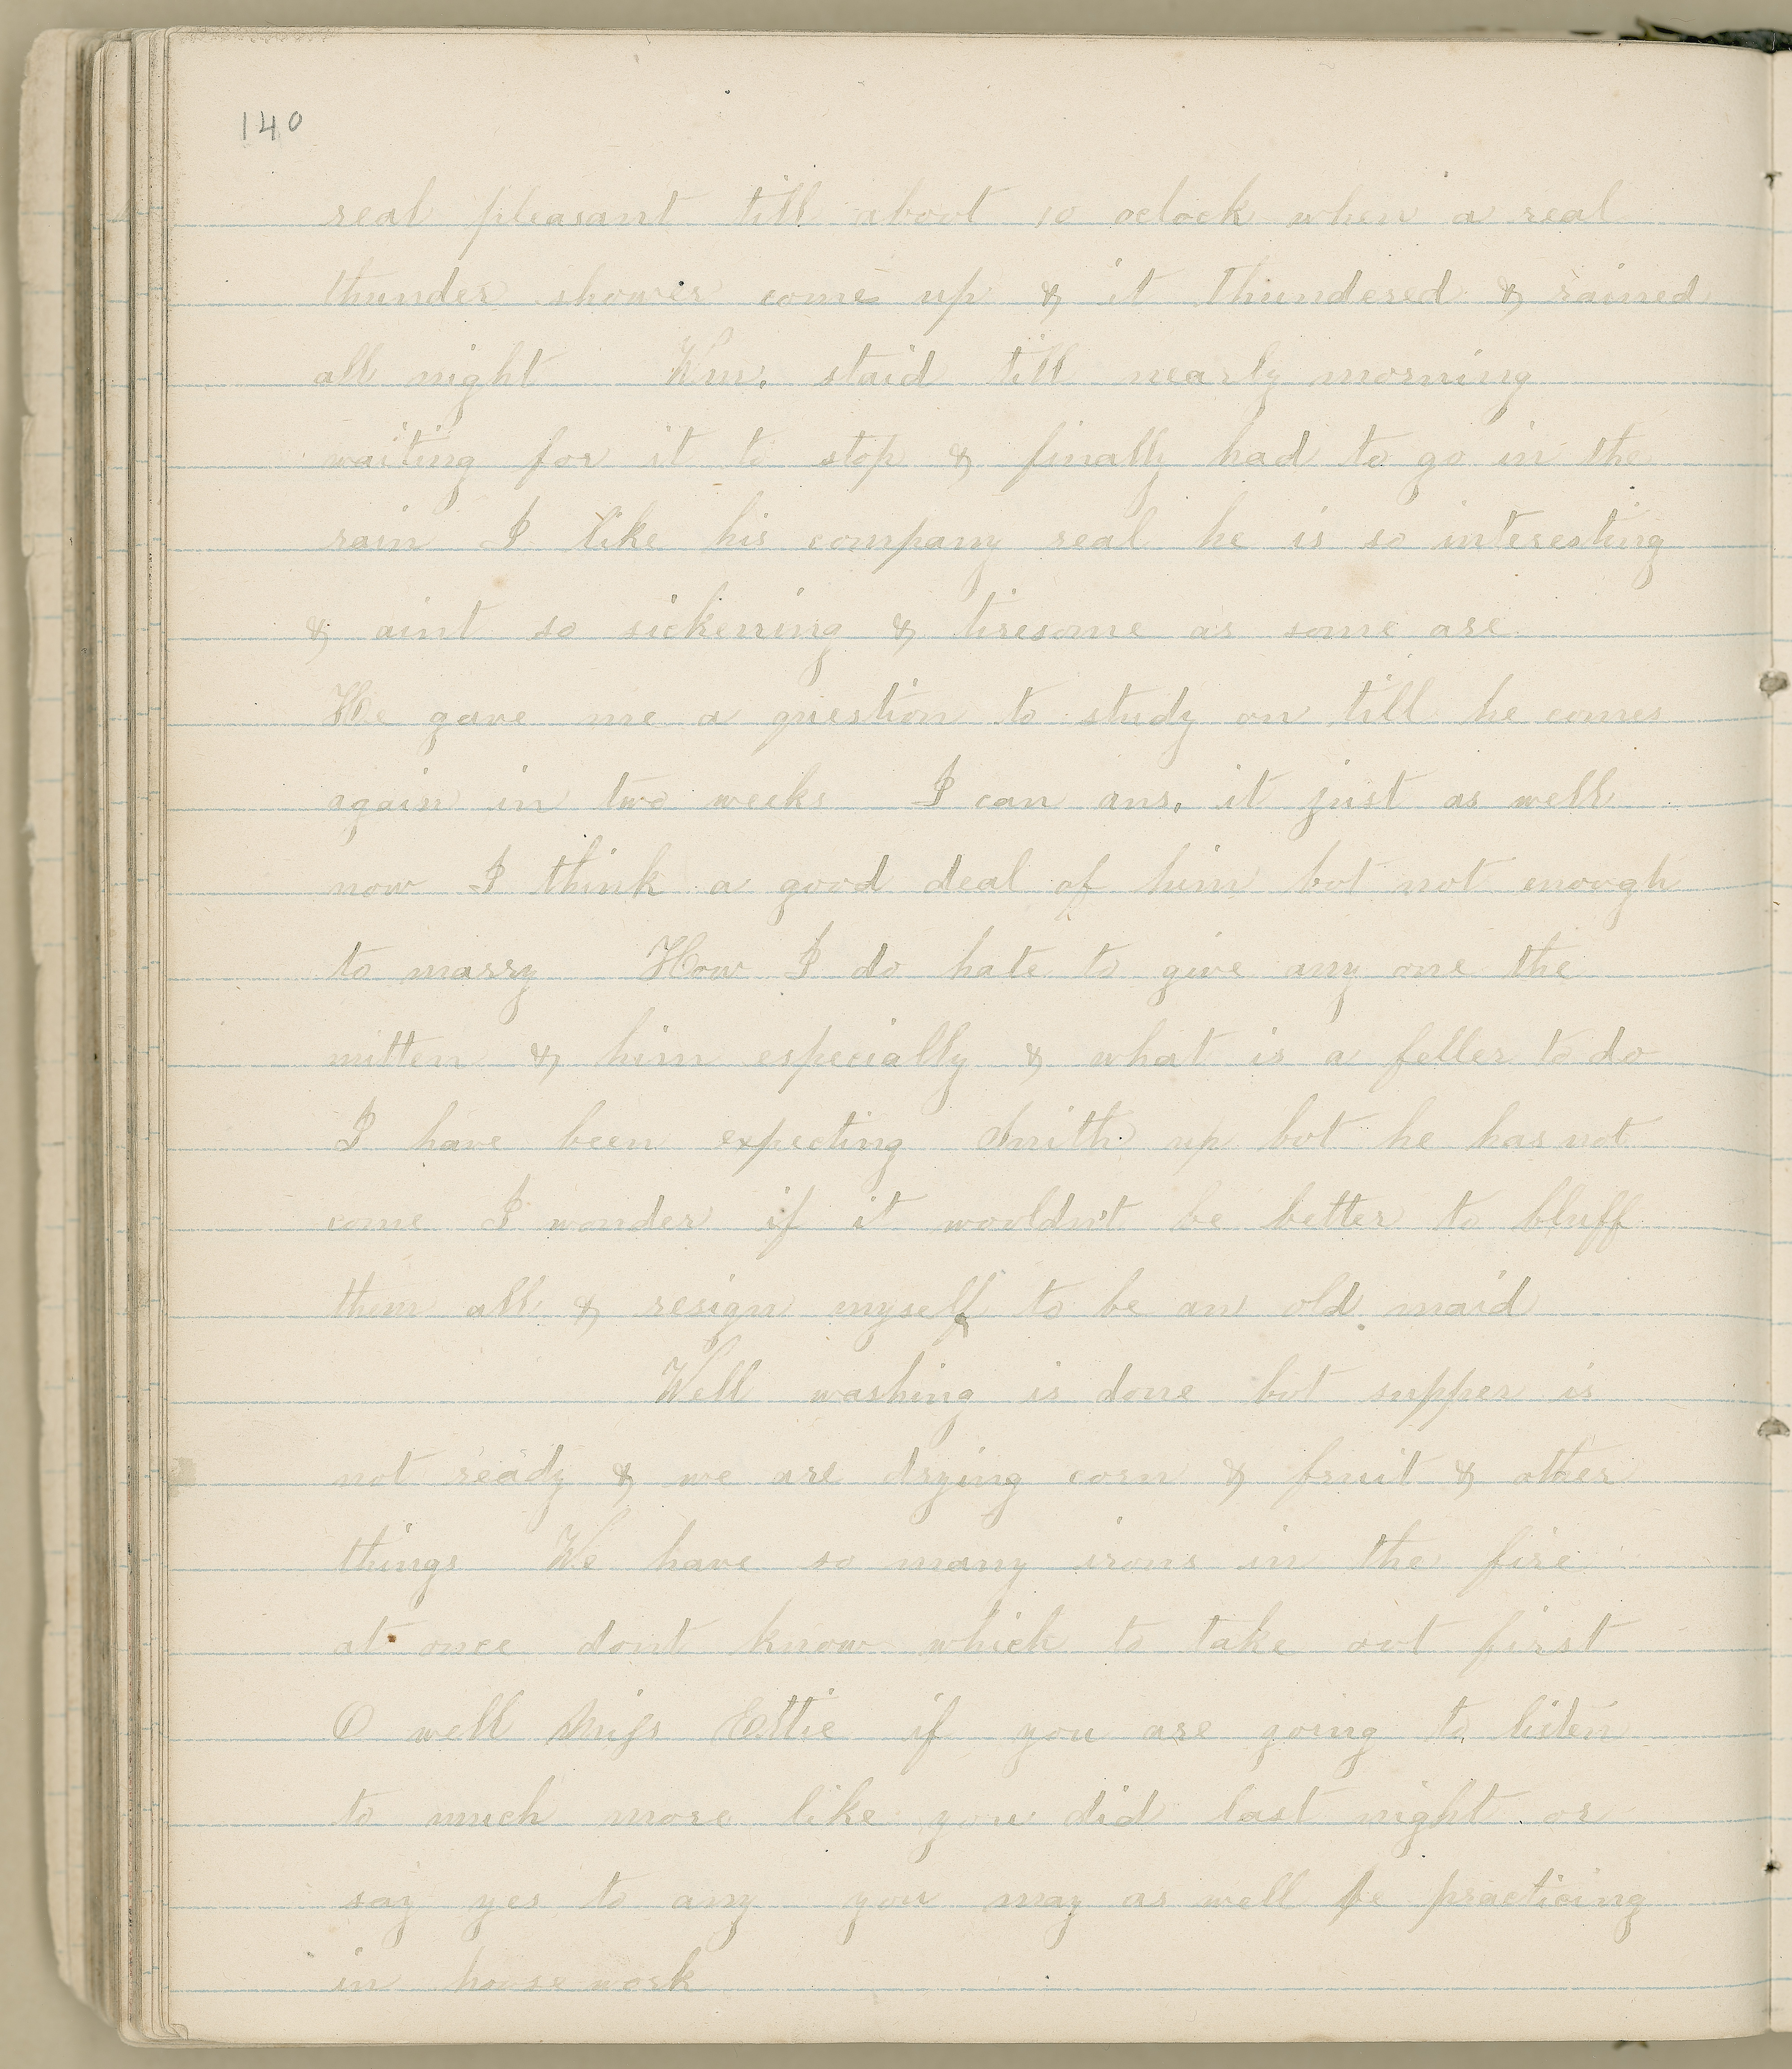 140
real pleasant till about 10 oclock when a real
thunder shower come up & it thundered & rained
all night Wm. staid till nearly morning
waiting for it to stop & finally had to go in the
rain I like his company real he is so interesting
& aint so sickening & tiresome as some are
He gave me a question to study on till he comes
again in two weeks I can ans. it just as well
now I think a good deal of him but not enough
to marry How I do hate to give any one the
mitten & him especially & what is a feller to do
I have been expecting Smith up but he has not
come I wonder if it wouldn't be better to bluff
them all & resign myself to be an old maid
Well washing is done but supper is
not ready & we are drying corn & fruit & other
things We have so many irons in the fire
at once dont know which to take out first
O well Miss Ettie if you are going to listen
to much more like you did last night or
say yes to any you may as well be practicing
in house work